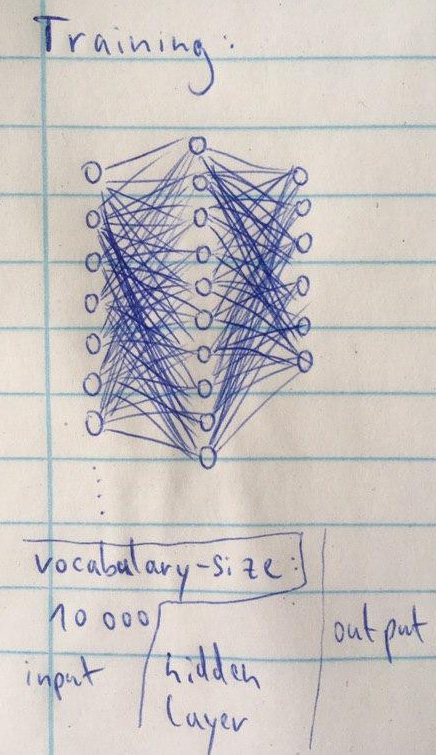 Training:
vocabulary-size:
10 000
input
hidden
layer
output